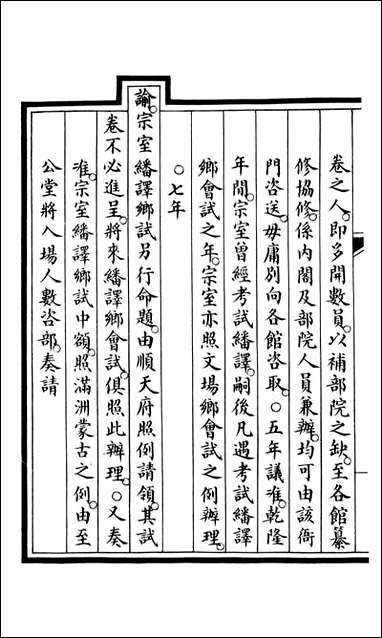 卷之人。即多開數員。以補部院之缺。至各館纂
修協修。係內閣及部院人員兼辦。均可由該衙
門咨送。毋庸別向各館咨取。○五年議准。乾隆
年閒。宗室曾經考試繙譯。嗣後凡遇考試繙譯
鄉會試之年。宗室亦照文場鄉會試之例辦理。
○七年
諭。宗室繙譯鄉試另行命題。由順天府照例請領。其試
卷不必進呈。將來繙譯鄉會試。俱照此辦理。○又奏
准。宗室繙譯鄉試中額。照滿洲蒙古之例。由至
公堂將入場人數咨部。奏請